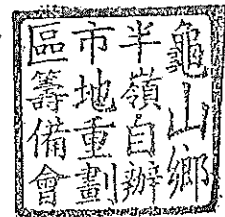 龜山鄉
半嶺自辦
市地重劃
區籌備會